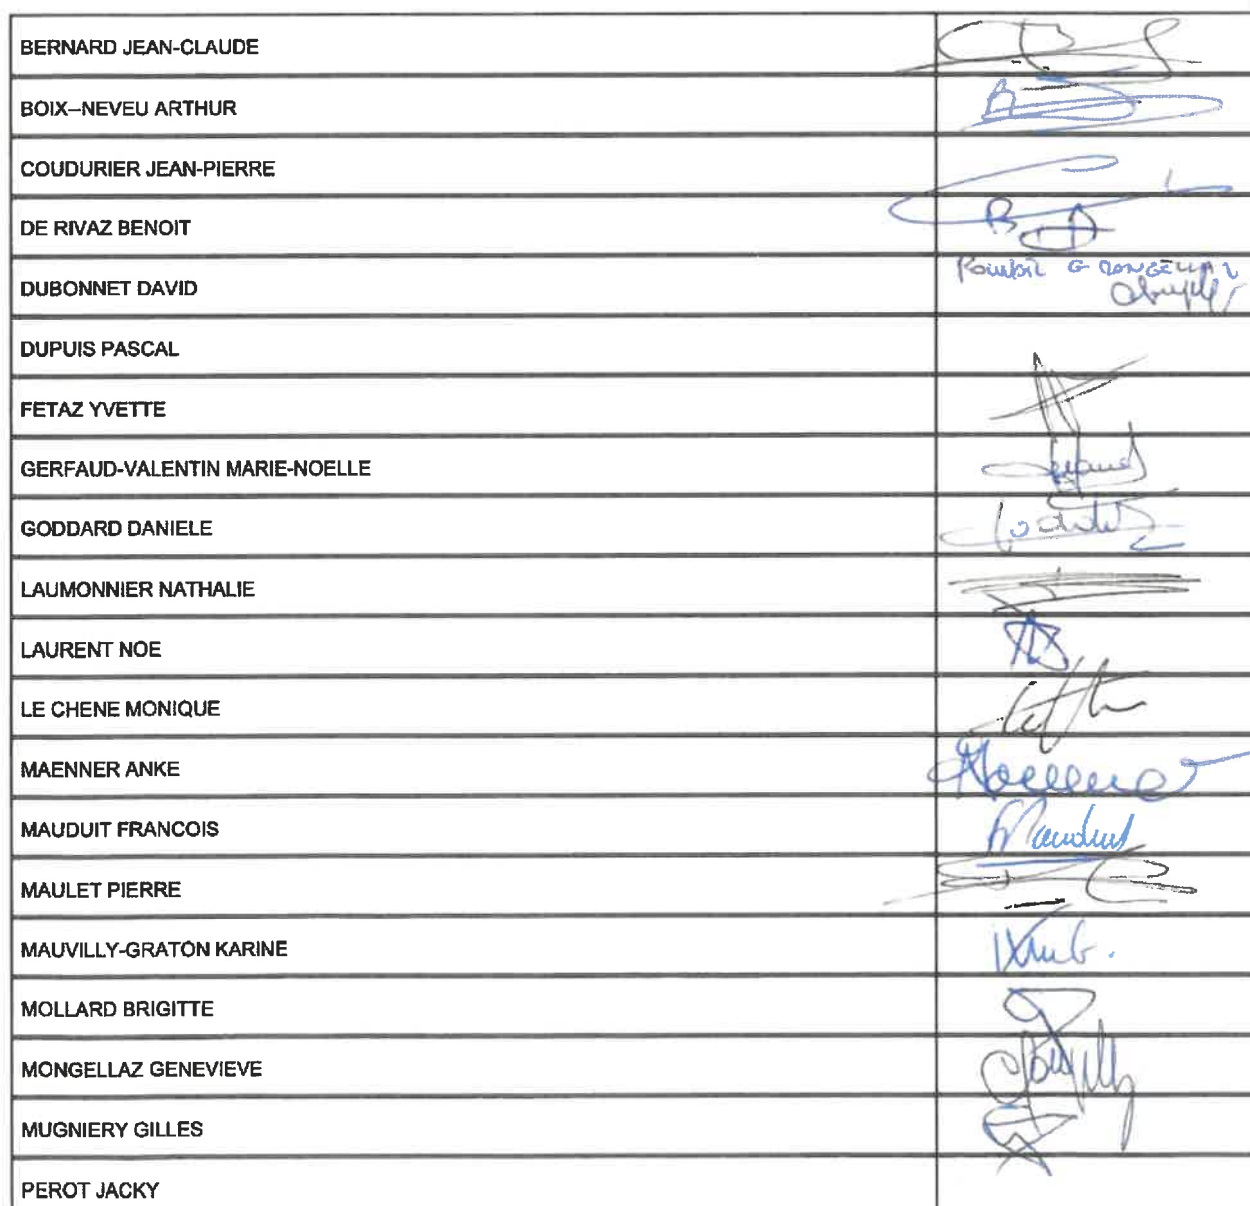 BERNARD JEAN-CLAUDE
BOIX--NEVEU ARTHUR
COUDURIER JEAN-PIERRE
DE RIVAZ BENOIT
DUBONNET DAVID
Pouvoir G MONGELLAZ
DUPUIS PASCAL
FETAZ YVETTE
GERFAUD-VALENTIN MARIE-NOELLE
GODDARD DANIELE
LAUMONNIER NATHALIE
LAURENT NOE
LE CHENE MONIQUE
MAENNER ANKE
MAUDUIT FRANCOIS
Mauduit
MAULET PIERRE
MAUVILLY-GRATON KARINE
MOLLARD BRIGITTE
MONGELLAZ GENEVIEVE
MUGNIERY GILLES
PEROT JACKY